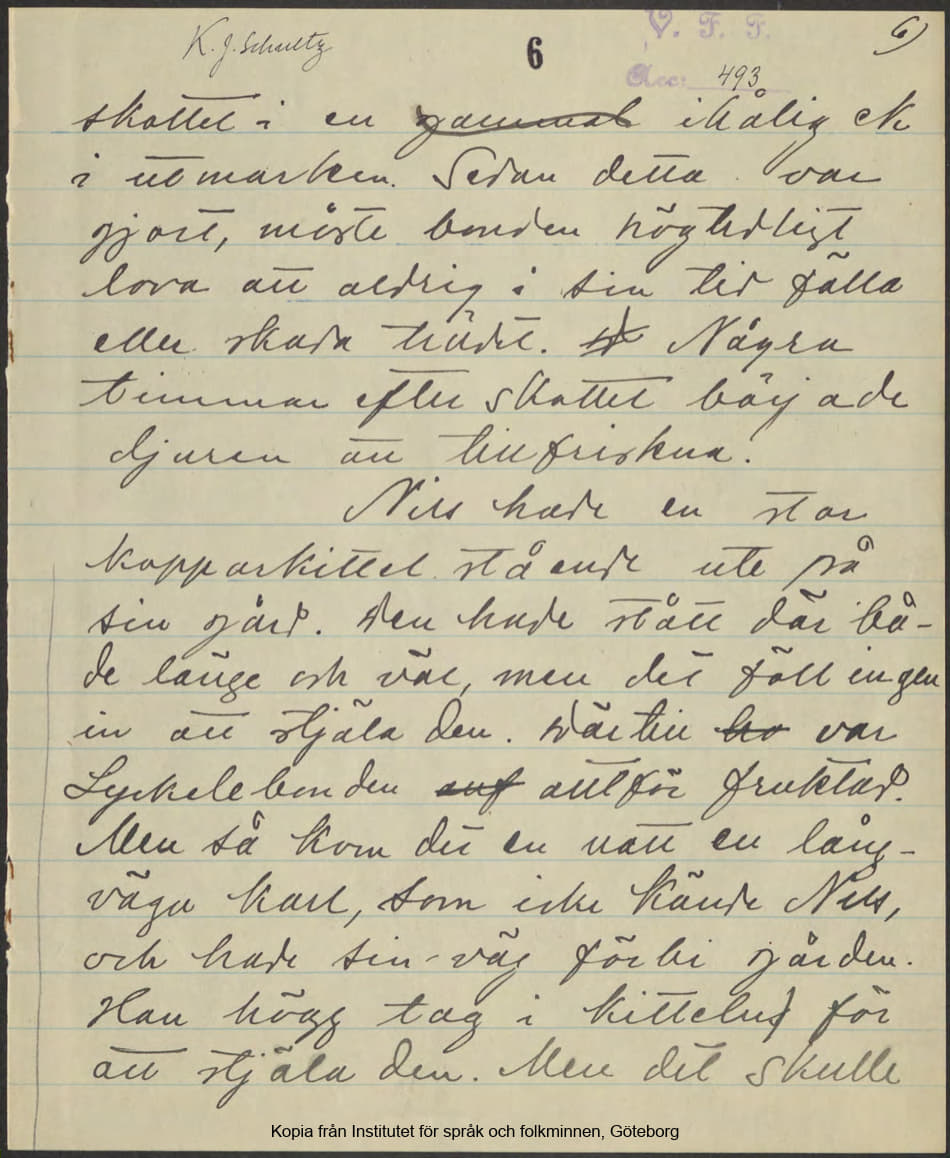 K. J. Schultz
6
6)
V. F. F.
Acc: 493
skottet i en gammal ihålig ek
i utmarken. Sedan detta var
gjort, måste bonden högtidligt
lova att aldrig i sin tid fälla
eller skada trädet. Några
timmar efter skottet började
djuren att tillfriskna.
Nils hade en stor
kopparkittel stående ute på
sin gård. Den hade stått där bå-
de länge och väl, men det föll ingen
in att stjäla den. Därtill ho var
Lyckelebonden allt för fruktad.
Men så kom det en natt en lång-
väga karl, som icke kände Nils,
och hade sin väg förbi gården.
Han högg tag i kitteln för
att stjäla den. Men det skulle
Kopia från Institutet för språk och folkminnen, Göteborg